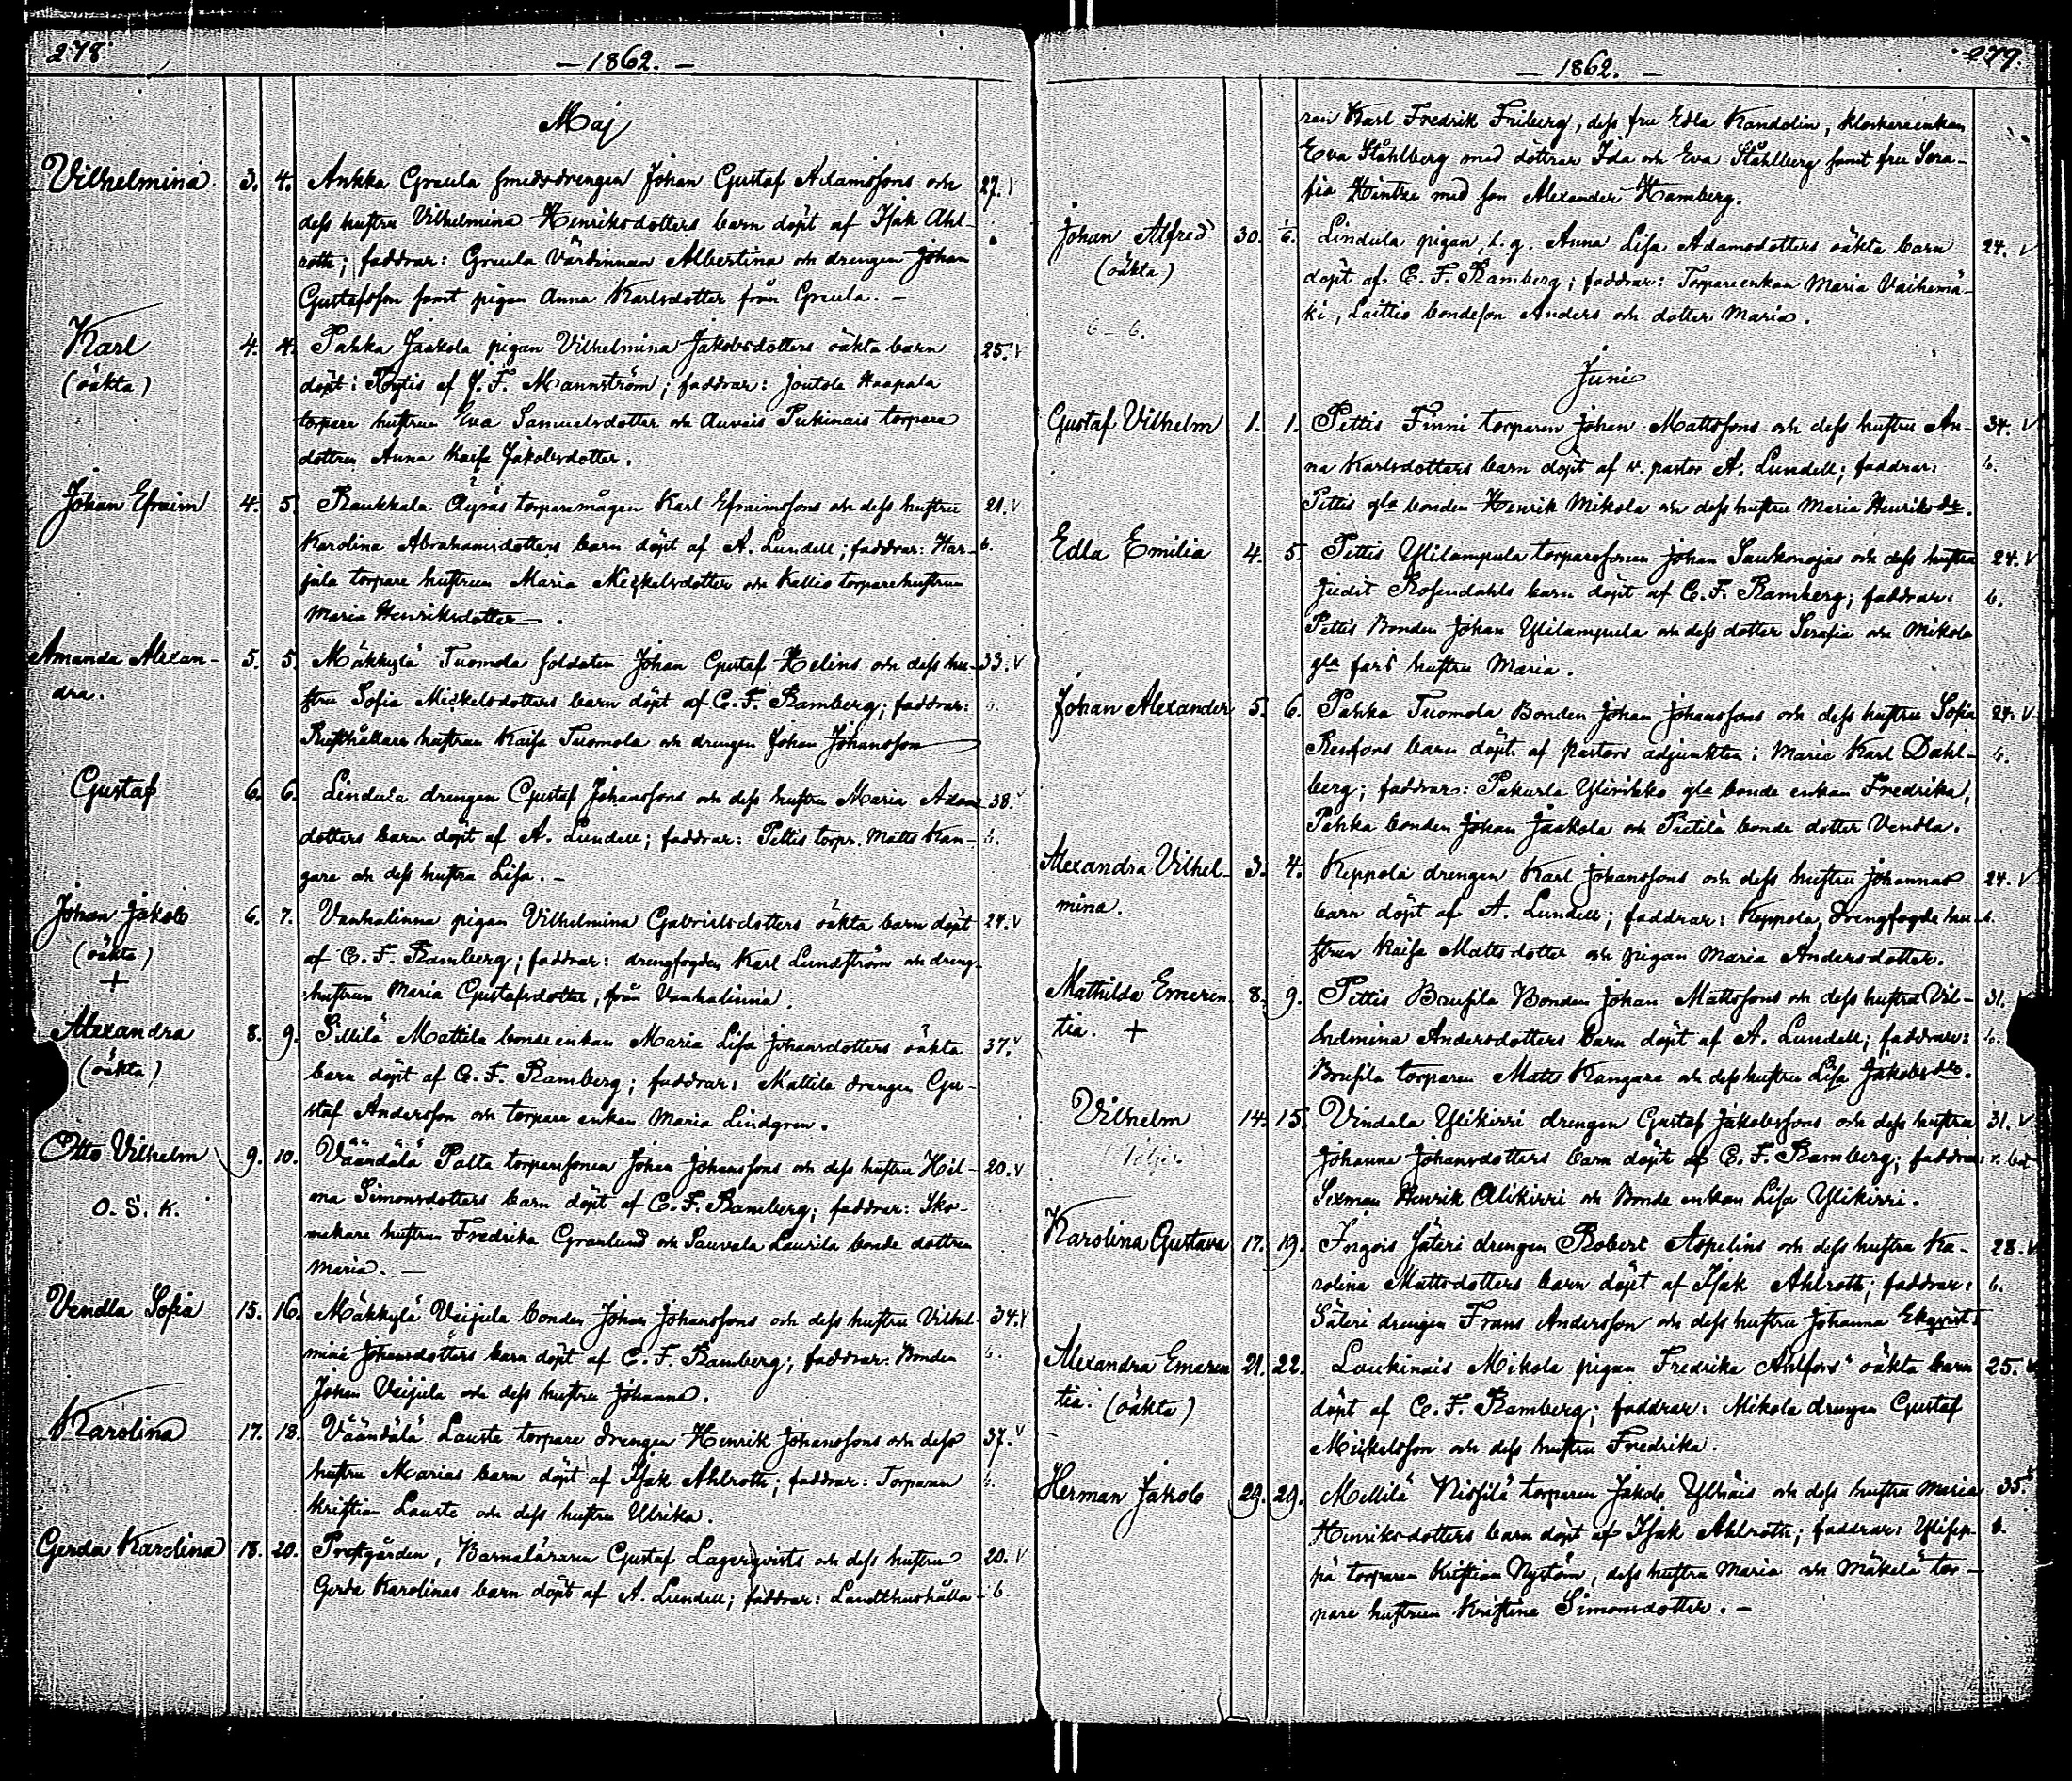 278.
— 1862. —
Maj
Vilhelmina. 3. 4. Ankka Greula smidsdrengen Johan Gustaf Adamssons och 27. v
dess hustru Vilhelmina Henriksdotters barn döpt af Isak Ahl-
roth; faddrar: Greula Värdinnan Albertina och drengen Johan
Gustafsson samt pigan Anna Karlsdotter från Greula. —
Karl 4. 4. Pahka Jaakola pigan Vilhelmina Jakobsdotters oäkta barn 25. v
(oäkta) döpt i Töytis af J. F. Mannström; faddrar: Joutola Haapala
torpare hustrun Eva Samuelsdotter och Auvais Pukinais torpare
dottren Anna Kaisa Jakobsdotter.
Johan Efraim 4. 5. Raukkala Äyräs torparemågen Karl Efraimssons och dess hustru 21. v
Karolina Abrahamsdotters barn döpt af A. Lundell; faddrar: Har- b.
jula torpare hustrun Maria Mickelsdotter och Kallio torparehustrun
Maria Henriksdotter.
Amanda Alexan- 5. 5. Mäkkylä Tuomola soldaten Johan Gustaf Helins och dess hu- 33. v
dra. stru Sofia Mickelsdotters barn döpt af C. F. Ramberg; faddrar: b.
Rusthållare hustrun Kaisa Tuomola och drengen Johan Johansson
Gustaf 6. 6. Lindula drengen Gustaf Johanssons och dess hustru Maria Adams 38. v
dotters barn döpt af A. Lundell; faddrar: Pettis torpr. Matts Kan- b.
gare och dess hustru Lisa. —
Johan Jakob 6. 7. Vanhalinna pigan Vilhelmina Gabrielsdotters oäkta barn döpt 24. v
(oäkta) af C. F. Ramberg; faddrar: drengfogden Karl Lundström och dreng-
+ hustrun Maria Gustafsdotter, från Vanhalinna.
Alexandra 8. 9. Sillilä Mattila bondeenkan Maria Lisa Johansdotters oäkta 37. v
(oäkta) barn döpt af C. F. Ramberg; faddrar: Mattila drengen Gu-
staf Andersson och torpare enkan Maria Lindgren.
Otto Vilhelm 9. 10. Väändälä Palta torparesonen Johan Johanssons och dess hustru Hel- 20. v
O. S. K. ma Simonsdotters barn döpt af C. F. Ramberg; faddrar: Sko-
makare hustrun Fredrika Granlund och Sauvala Laurila bonde dottren
Maria. —
Vendla Sofia 15. 16. Mäkkylä Veijula bonden Johan Johanssons och dess hustru Vilhel- 34. v
mina Johansdotters barn döpt af C. F. Ramberg; faddrar: Bonden b.
Johan Veijula och dess hustru Johanna.
Karolina 17. 18. Väändälä Lauste torpare drengen Henrik Johanssons och dess 37. v
hustru Marias barn döpt af Isak Ahlroth; faddrar: Torparen b.
Kristian Lauste och dess hustru Ulrika.
Gerda Karolina 18. 20. Prestgården, Barnaläraren Gustaf Lagerqvists och dess hustru 20. v
Gerda Karolinas barn döpt af A. Lundell; faddrar: Landthushålla- b.
279.
— 1862. —
ren Karl Fredrik Friberg, dess fru Edla Kandolin, klockareenkan
Eva Ståhlberg med döttrar Ida och Eva Ståhlberg samt fru Sera-
fia Hintze med son Alexander Hamberg.
Johan Alfred 30. 1/6. Lindula pigan, l. g. Anna Lisa Adamsdotters oäkta barn 24. v
(oäkta) döpt af C. F. Ramberg; faddrar: Torpareenkan Maria Vaihemä-
6 – 6. ki, Laittio bondeson Anders och dotter Maria.
Juni
Gustaf Vilhelm 1. 1. Pettis Finni torparen Johan Mattssons och dess hustru An- 34. v
na Karlsdotters barn döpt af v. pastor A. Lundell; faddrar: b.
Pettis gla bonden Henrik Mikola och dess hustru Maria Henriksdr.
Edla Emilia 4. 5. Pettis Ylilampula torparesonen Johan Saukonojas och dess hustru 24. v
Judit Rosendahls barn döpt af C. F. Ramberg; faddrar: b.
Pettis Bonden Johan Ylilampula och dess dotter Serafia och Mikola
gla fars hustru Maria.
Johan Alexander 5. 6. Pahka Tuomola Bonden Johan Johanssons och dess hustru Sofia 24. v
Renfors barn döpt af pastors adjunkten i Marie Karl Dahl- b.
berg; faddrar: Pakurla Ylirikko gla bonde enkan Fredrika,
Pahka bonden Johan Jaakola och Pietilä bonde dotter Vendla.
Alexandra Vilhel- 3. 4. Keppola drengen Karl Johanssons och dess hustru Johannas 24. v
mina. barn döpt af A. Lundell; faddrar: Keppola, drengfogde hu- b.
strun Kaisa Mattsdotter och pigan Maria Andersdotter.
Mathilda Emeren- 8. 9. Pettis Brusila Bonden Johan Mattssons och dess hustru Vil- 31. v
tia. + helmina Andersdotters barn döpt af A. Lundell; faddrar: b.
Brusila torparen Matts Kangare och dess hustru Lisa Jakobsdr.
Vilhelm 14. 15. Vindala Ylikirri drengen Gustaf Jakobssons och dess hustru 31. v
Johanna Johansdotters barn döpt af C. F. Ramberg; faddrar:
Sexman Henrik Alikirri och Bonde enkan Lisa Ylikirri.
Karolina Gustava 17. 19. Ingois Säteri drengen Robert Aspelins och dess hustru Ka- 28. v
rolina Mattsdotters barn döpt af Isak Ahlroth; faddrar: b.
Säteri drengen Frans Andersson och dess hustru Johanna Ekqvist.
Alexandra Emeren 21. 22. Laukinais Mikola pigan Fredrika Ahlfors' oäkta barn 25. v
tia. (oäkta) döpt af C. F. Ramberg; faddrar: Mikola drengen Gustaf
Mickelsson och dess hustru Fredrika.
Herman Jakob 29. 29. Mellilä Nissilä torparen Jakob Ylhäis och dess hustru Maria 35. v
Henriksdotters barn döpt af Isak Ahlroth; faddrar: Ylisep- b.
pä torparen Kristian Nyström, dess hustru Maria och Mäkelä tor-
pare hustrun Kristina Simonsdotter. —